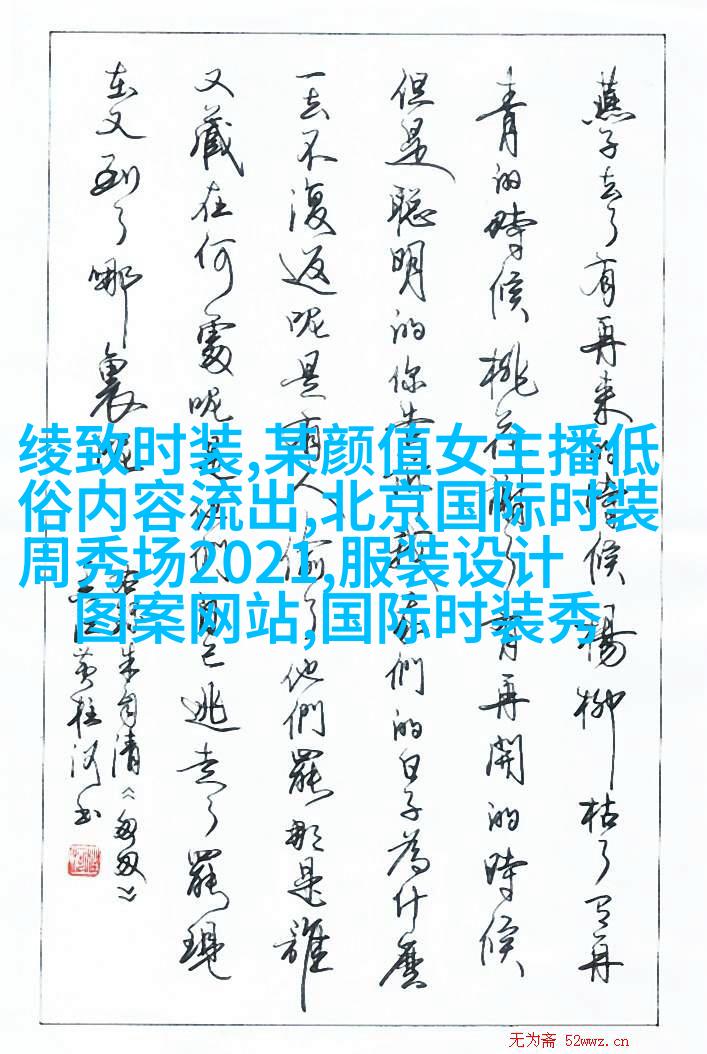 燕子去了有再来的時候楊柳枯了有再
青的時候桃花謝了有再開的時候
但是聪明的你告我們的日子為什麽
一去不復返呢是有人偷了他們罷那是誰
又藏在何處呢是他們自己逃走了罷現
在又到了哪裏呢
朱自清《匆匆》
绫致时装,某颜值女主播低
俗内容流出,北京国际时装
周秀场2021,服装设计
图案网站,国际时装秀
无为斋 52wwz.cn